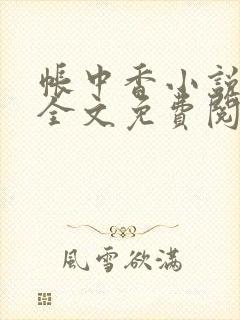 帳中香小說
全文免費閱
風雪欲滿